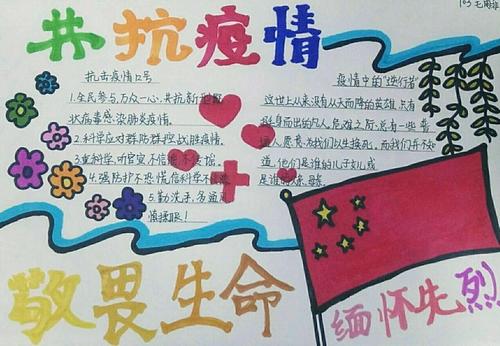 103 毛
共抗疫情
抗击疫情口号
1.全民参与,万众一心,共抗新型冠
状病毒感染肺炎疫情.
2.科学应对群防群控战胜疫情.
3.查科学,听官宣不信谣不传谣.
4.强防护不恐慌信科学不
5.勤洗手,多通风
慎揉眼!
疫情中的"逆行者"
这世上从来没有从天而降的英雄,只有
挺身而出的凡人.危难之际,总有一些普
通人愿意为我们以生换死.而我们并不知
道,他们是谁的儿子女儿或
是谁的父亲、母亲.
敬畏生命
缅怀先烈